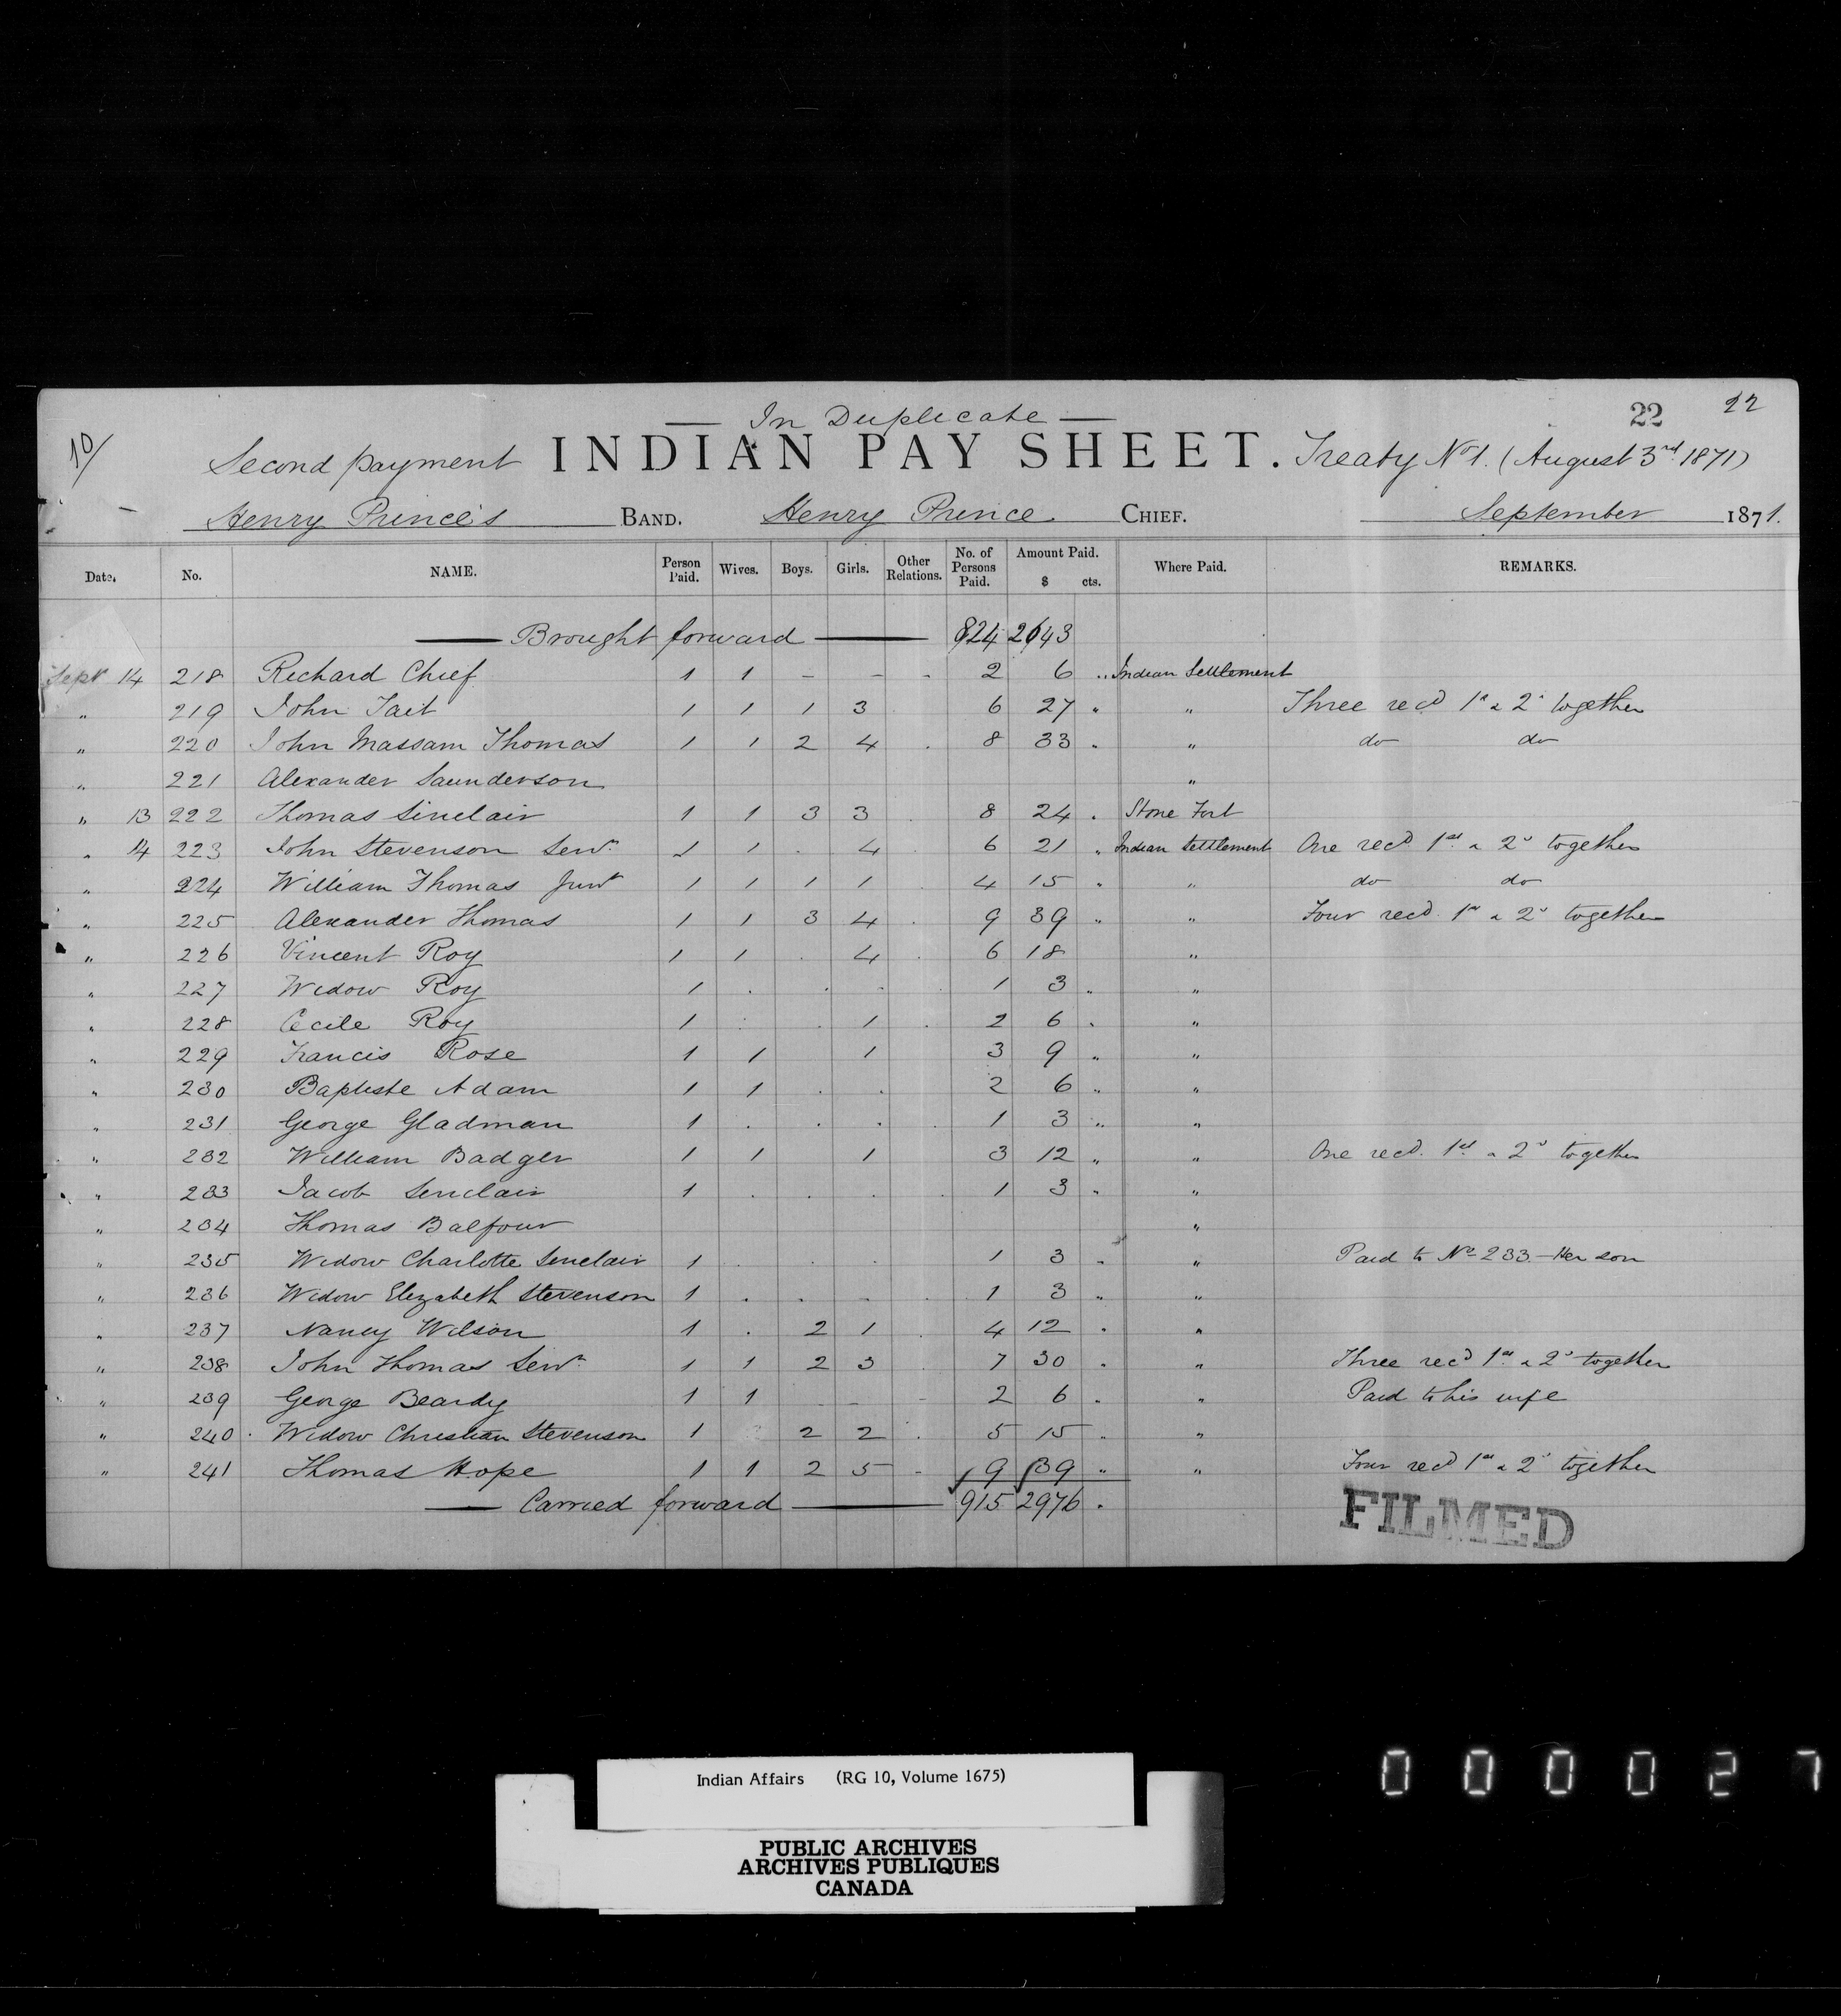 — In Duplicate —
22 22
10/
Second payment INDIAN PAY SHEET. Treaty No 1. (August 3rd 1871)
Henry Prince's BAND. Henry Prince CHIEF. September 1871.
Date. No. NAME. Person Paid. Wives. Boys. Girls. Other Relations. No. of Persons Paid. Amount Paid. $ cts. Where Paid. REMARKS.
— Brought forward — 824 2643
Sept 14 218 Richard Chief 1 1 - - - 2 6 .. Indian Settlement
" 219 John Tait 1 1 1 3 6 27 " " Three recd 1st & 2d together
" 220 John Massam Thomas 1 1 2 4 . 8 33 " " do do
" 221 Alexander Saunderson "
" 13 222 Thomas Sinclair 1 1 3 3 8 24 . Stone Fort
" 14 223 John Stevenson Senr 1 1 . 4 6 21 " Indian Settlement One recd 1st & 2d together
" 224 William Thomas Junr 1 1 1 1 4 15 " " do do
" 225 Alexander Thomas 1 1 3 4 . 9 39 " " Four recd. 1st & 2d together
" 226 Vincent Roy 1 1 . 4 . 6 18 "
" 227 Widow Roy 1 . . . 1 3 " "
" 228 Cecile Roy 1 . . 1 . 2 6 " "
" 229 Francis Rose 1 1 1 3 9 " "
" 230 Baptiste Adam 1 1 . . 2 6 " "
" 231 George Gladman 1 . . . . 1 3 " "
" 232 William Badger 1 1 1 3 12 " " One recd. 1st & 2d together
" 233 Jacob Sinclair 1 . . . . 1 3 " "
" 234 Thomas Balfour "
" 235 Widow Charlotte Sinclair 1 . . . 1 3 " " Paid to No 233 - Her son
" 236 Widow Elizabeth Stevenson 1 . . . . 1 3 " "
" 237 Nancy Wilson 1 . 2 1 . 4 12 " "
" 238 John Thomas Senr 1 1 2 3 7 30 " " Three recd 1st & 2d together
" 239 George Beardy 1 1 - - - 2 6 " " Paid to his wife
" 240 Widow Christian Stevenson 1 2 2 . 5 15 " "
" 241 Thomas Hope 1 1 2 5 - 9 39 " " Four recd 1st & 2d together
— Carried forward — 915 2976 .
FILMED
Indian Affairs (RG 10, Volume 1675)
0 0 0 0 2 7
PUBLIC ARCHIVES
ARCHIVES PUBLIQUES
CANADA